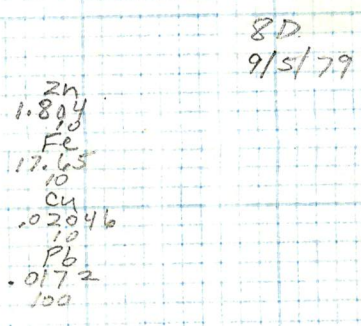 8D
9/5/79
Zn
1.804
10
Fe
17.65
10
Cu
.02046
10
Pb
.0172
100